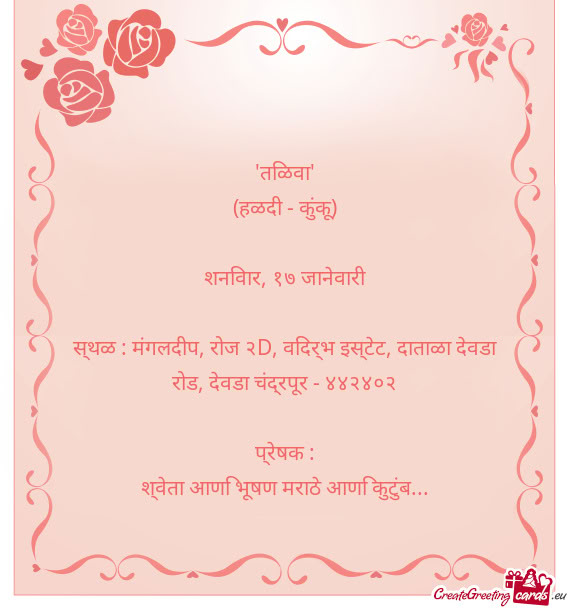 'तिळवा'
(हळदी - कुंकू)
शनिवार, १७ जानेवारी
स्थळ : मंगलदीप, रोज २D, विदर्भ इस्टेट, दाताळा देवडा
रोड, देवडा चंद्रपूर - ४४२४०२
प्रेषक :
श्वेता आणि भूषण मराठे आणि कुटुंब...
CreateGreetingcards.eu